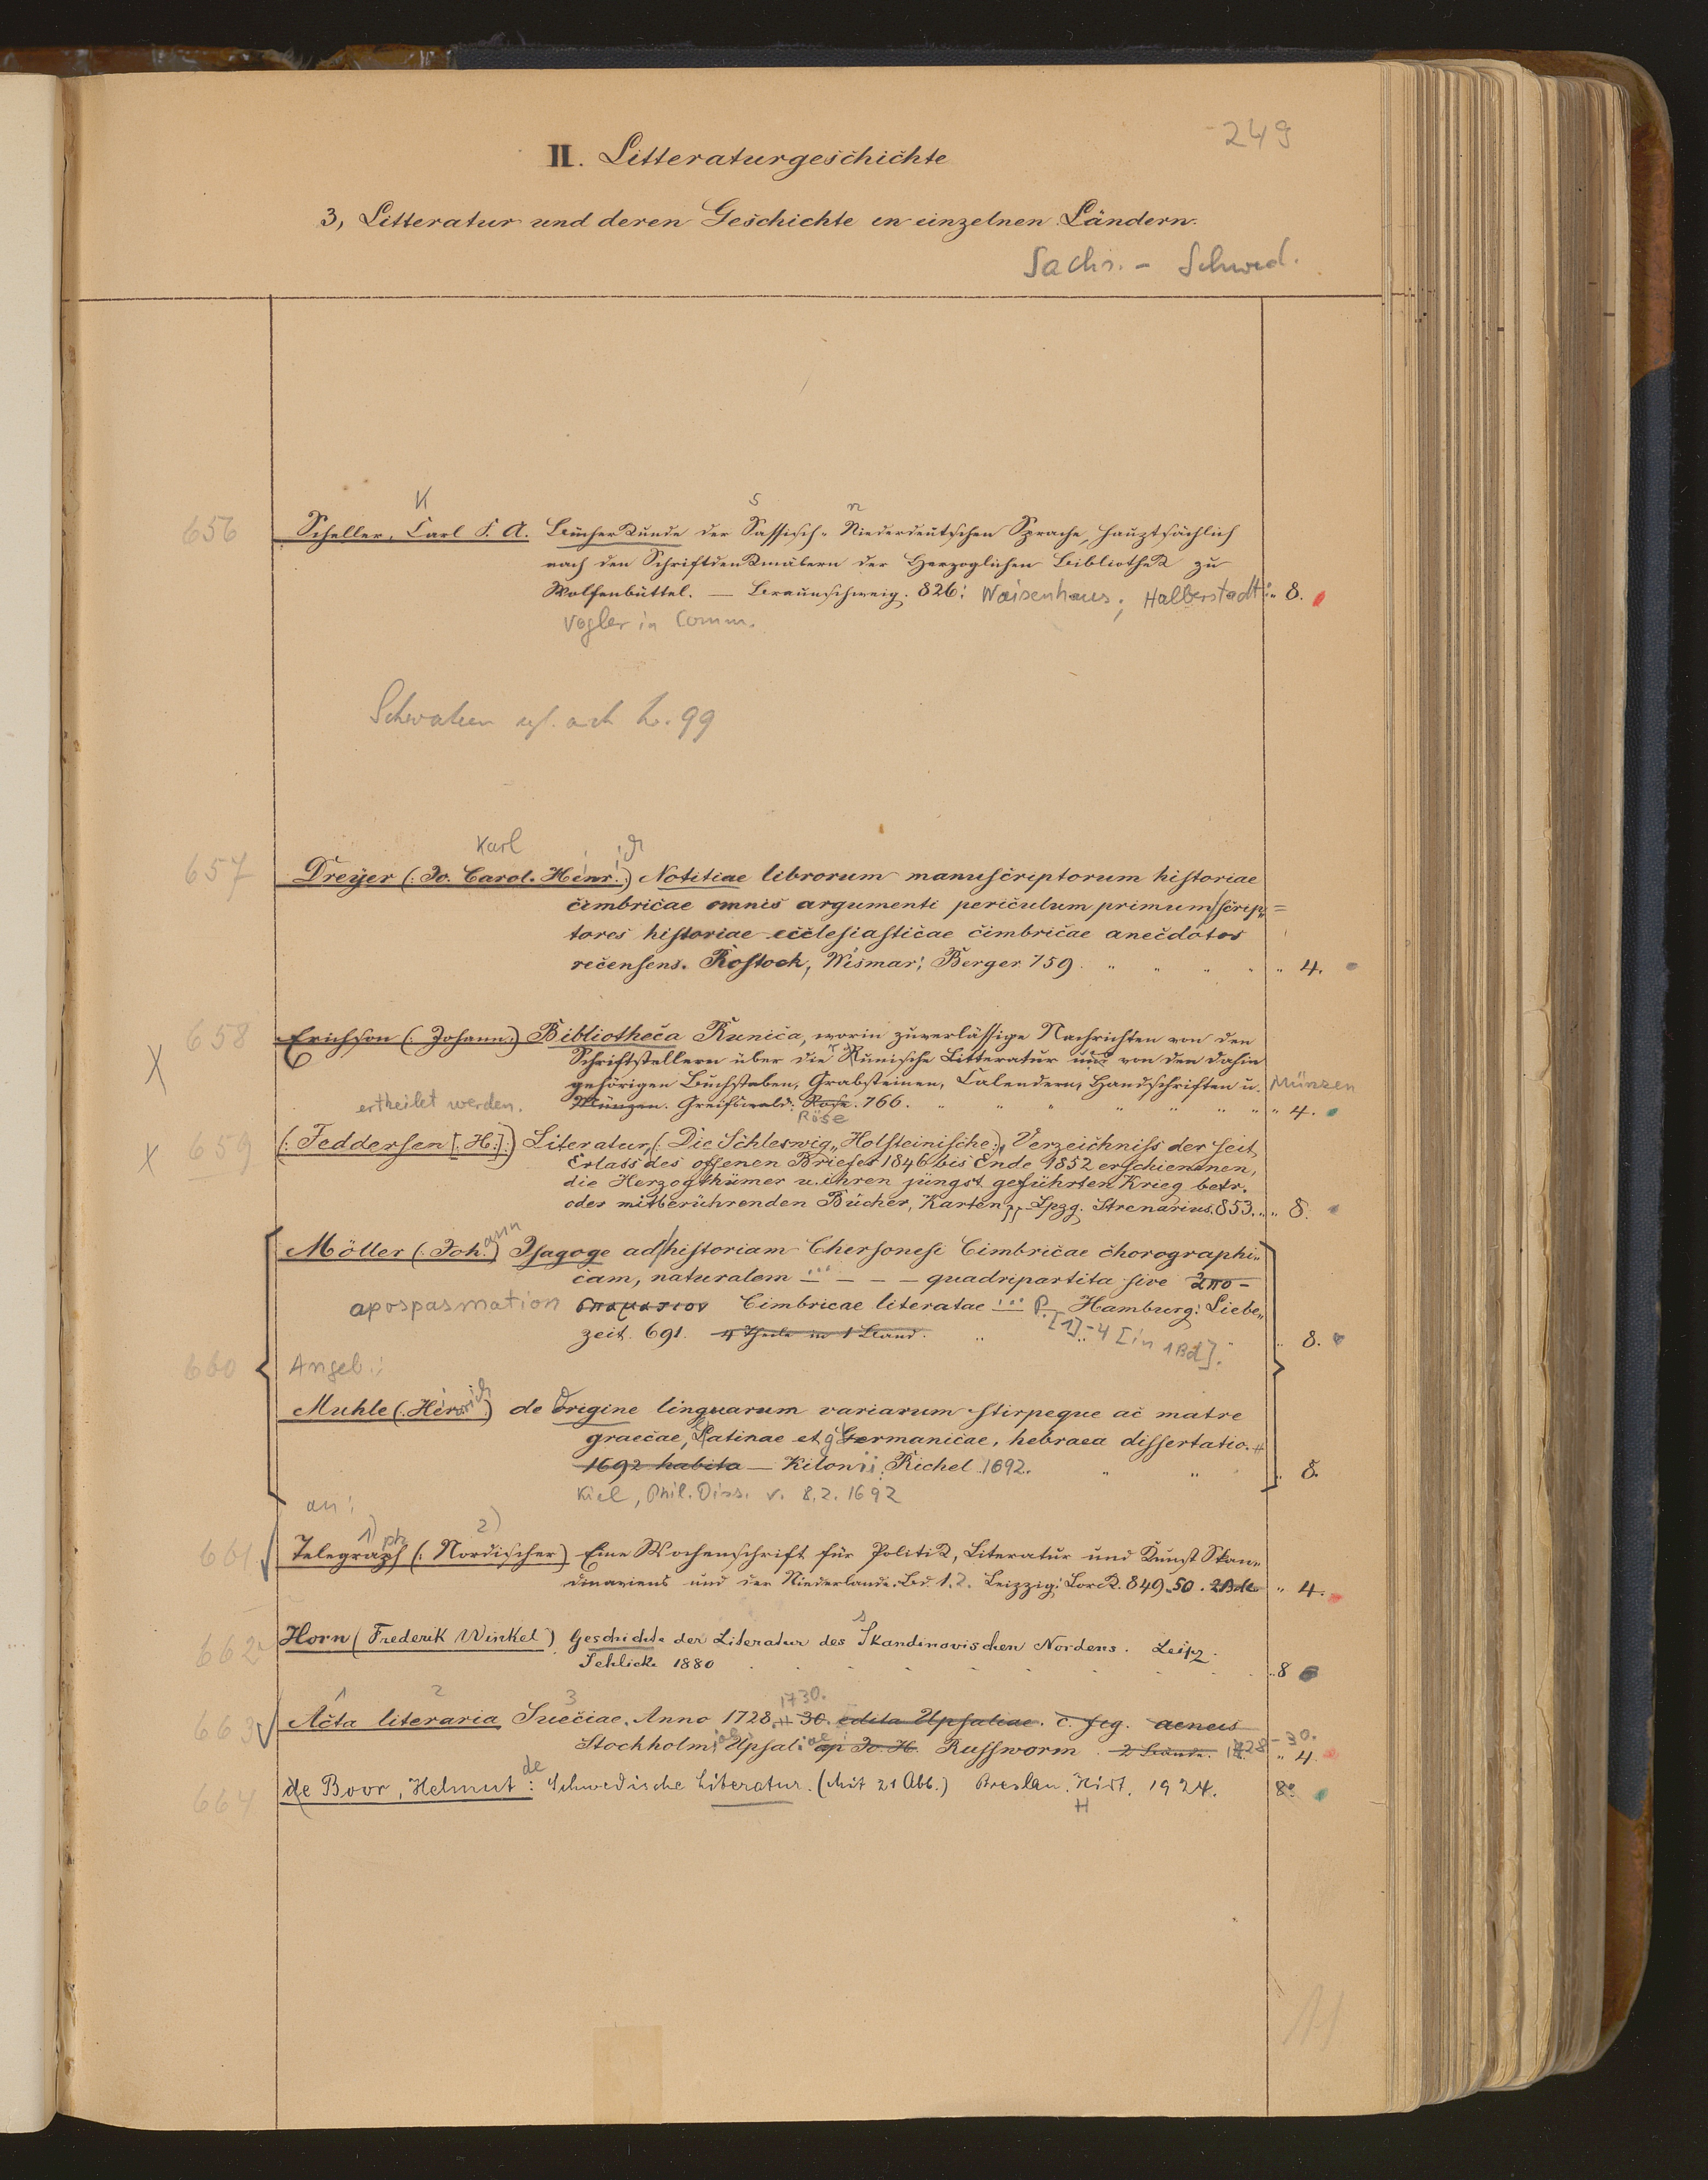 249
II. Litteraturgeschichte
3, Litteratur und deren Geschichte in einzelnen Ländern.
Sachs. - Schwed.
K s n
656 Scheller, Carl F. A. Bücherkunde der Sassisch-Niederdeutschen Sprache, hauptsächlich
nach den Schriftdenkmälern der Herzoglichen Bibliothek zu
Wolfenbüttel. — Braunschweig. 826: Waisenhaus; Halberstadt: „ 8.
Vogler in Comm.
Schwaben vgl. auch L. 99
Karl ich
657 Dreÿer (: Jo. Carol. Henr.:) Notitiae librorum manuscriptorum historiae
cimbricae omnis argumenti periculum primum/scrip=
tores historiae ecclesiasticae cimbricae anecdotos
recensens. Rostock, Wismar; Berger 759. „ „ „ „ „ 4.
658 Erichson (: Johann:) Bibliotheca Runica, worin zuverlässige Nachrichten von den
X Schriftstellern über die Runische Litteratur und von den dahin
gehörigen Buchstaben, Grabsteinen, Calendern, Handschriften u. Münzen
ertheilet werden. Münzen. Greifswald: Rose. 766. „ „ „ „ „ „ „ „ 4.
Röse
X 659 (: Feddersen [: H:]:) Literatur, (: Die Schleswig„Holsteinische:), Verzeichniss der seit
Erlass des offenen Briefes 1846 bis Ende 1852 erschienenen,
die Herzogthümer u. ihren jüngst geführten Krieg betr.
oder mitberührenden Bücher, Karten pp. Lpzg. Strenarius. 853. „ „ 8.
ann
Möller (: Joh.:) Isagoge ad/historiam Chersonesi Cimbricae chorographi„
cam, naturalem ... — — — quadripartita sive απο-
apospasmation σπαμασιον Cimbricae literatae ... P. Hamburg: Liebe„
zeit. 691. 4 Theile in 1 Band. „ [1]-4 [in 1 Bd]. „ 8.
660 Angeb.:
Muhle (: Henrich:) de Origine linguarum variarum stirpeque ac matre
graecae, Latinae et germanicae, hebraea dissertatio.
1692 habita — Kilonii: Richel 1692. „ „ „ 8.
Kiel, Phil. Diss. v. 8.2.1692
an:
1) ph 2)
661 Telegraph (: Nordischer) Eine Wochenschrift für Politik, Literatur und Kunst Skan„
dinaviens und der Niederlande. Bd. 1. 2. Leipzig; Lorck. 849.50. 2 Bde „ 4.
s
662 Horn (Frederik Winkel) Geschichte der Literatur des Skandinavischen Nordens. Leipz.
Schlicke 1880 „ 8
1 2 3 1730.
663 Acta literaria Sueciae. Anno 1728 — 30. edita Upsaliae. c. fig. aeneis
Stockholm; Upsal: ap Jo. H. Russworm. 2 Bände. 1728-30. „ 4.
de
664 de Boor, Helmut: Schwedische Literatur. (Mit 21 Abb.) Breslau. Hirt. 1924. 8°
H